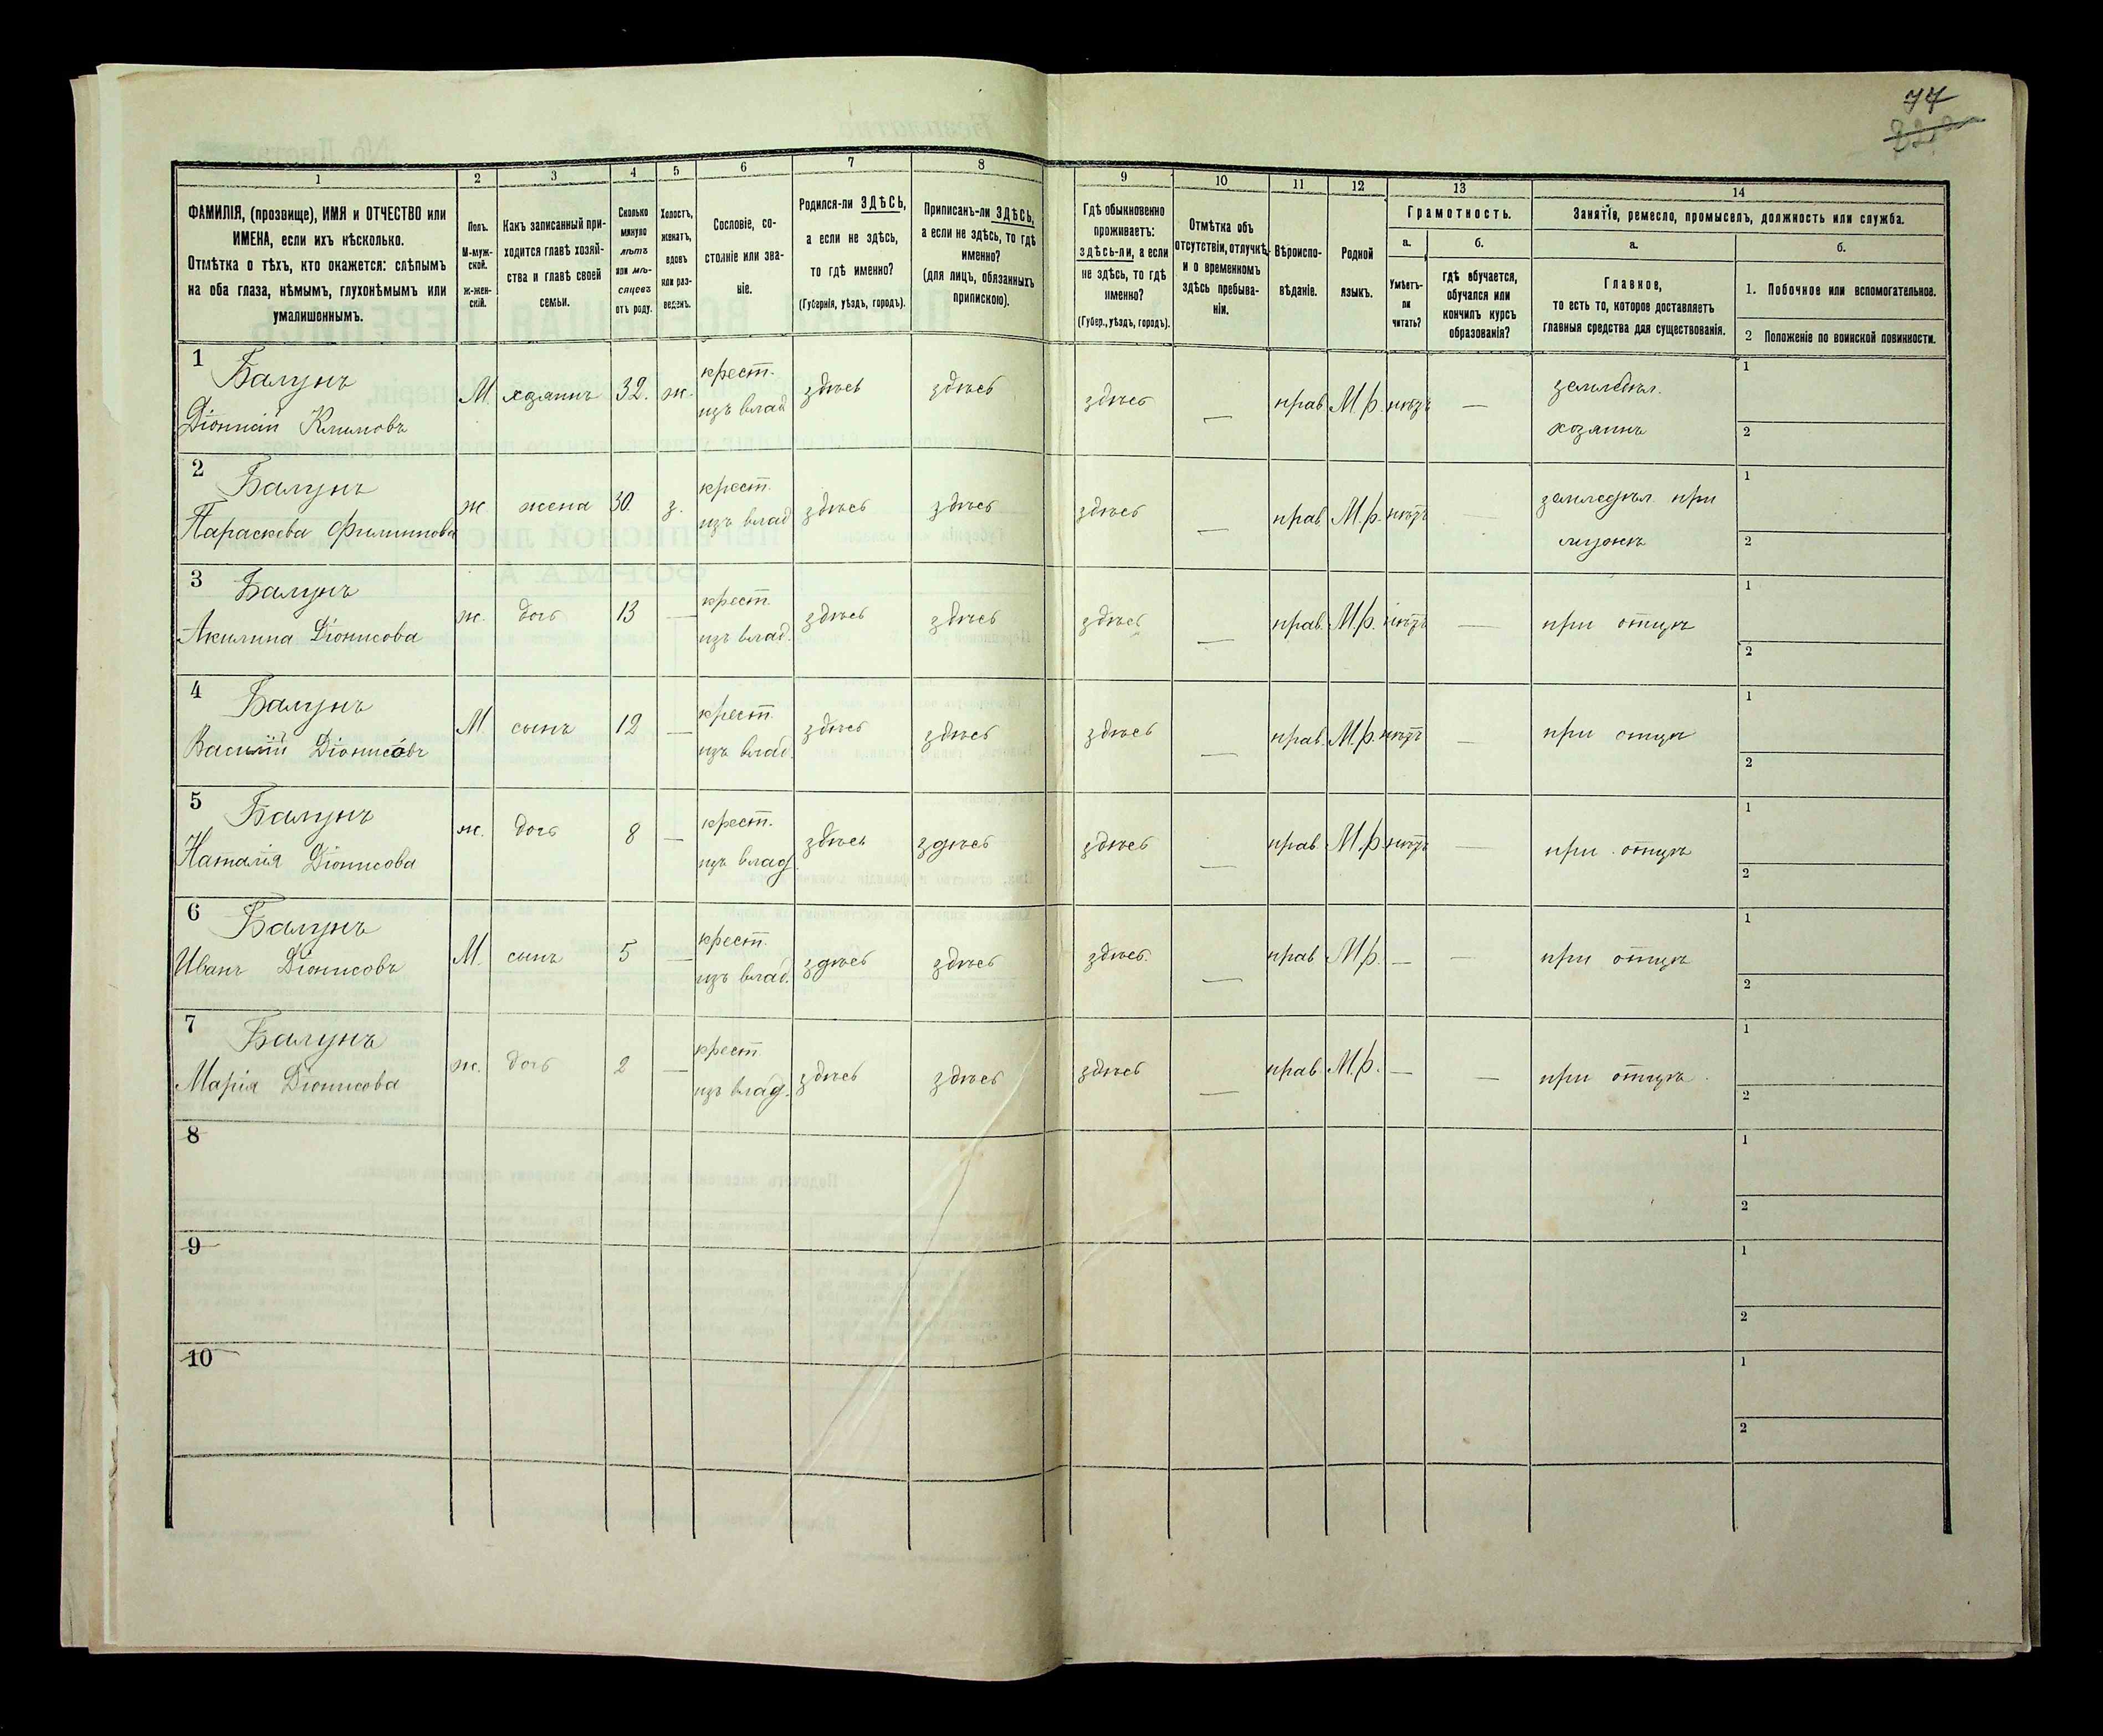 77
1
2
3
4
5
6
7
8
9
10
11
12
13
14
ФАМИЛІЯ, (прозвище), ИМЯ и ОТЧЕСТВО или
ИМЕНА, если ихъ нѣсколько.
Отмѣтка о тѣхъ, кто окажется: слѣпымъ
на оба глаза, нѣмымъ, глухонѣмымъ или
умалишеннымъ.
Полъ.
М-муж-
ской.
ж-жен-
скій.
Какъ записанный при-
ходится главѣ хозяй-
ства и главѣ своей
семьи.
Сколько
минуло
лѣтъ
или мѣ-
сяцевъ
отъ роду.
Холостъ,
женатъ,
вдовъ
или раз-
веденъ.
Сословіе, со-
стояніе или зва-
ніе.
Родился-ли ЗДѢСЬ,
а если не здѣсь,
то гдѣ именно?
(Губернія, уѣздъ, городъ).
Приписанъ-ли ЗДѢСЬ,
а если не здѣсь, то гдѣ
именно?
(для лицъ, обязанныхъ
припискою).
Гдѣ обыкновенно
проживаетъ:
здѣсь-ли, а если
не здѣсь, то гдѣ
именно?
(Губер., уѣздъ, городъ).
Отмѣтка объ
отсутствіи, отлучкѣ,
и о временномъ
здѣсь пребыва-
ніи.
Вѣроиспо-
вѣданіе.
Родной
языкъ.
Грамотность.
а.
Умѣетъ-
ли
читать?
б.
гдѣ обучается,
обучался или
кончилъ курсъ
образованія?
Занятіе, ремесло, промыселъ, должность или служба.
а.
Главное,
то есть то, которое доставляетъ
главныя средства для существованія.
б.
1. Побочное или вспомогательное.
2 Положеніе по воинской повинности.
1 Балунъ
Діонисій Климовъ
М хозяинъ 32. ж.
крест.
изъ влад
здѣсь здѣсь здѣсь — прав М.р. нѣтъ —
землѣдѣл.
хозяинъ
1
2
2 Балунъ
Параскева Филиппова
ж жена 30. з.
крест.
изъ влад
здѣсь здѣсь здѣсь — прав М.р. нѣтъ —
земледѣл при
мужѣ
1
2
3 Балунъ
Акилина Діонисова
ж. дочь 13 —
крест.
изъ влад.
здѣсь здѣсь здѣсь — прав. М.р. нѣтъ —
при отцѣ
1
2
4 Балунъ
Василій Діонисовъ
М сынъ 12 —
крест.
изъ влад.
здѣсь здѣсь здѣсь — прав. М.р. нѣтъ —
при отцѣ
1
2
5 Балунъ
Наталія Діонисова
ж. дочь 8 —
крест.
изъ влад.
здѣсь здѣсь здѣсь — прав М.р. нѣтъ —
при отцѣ
1
2
6 Балунъ
Иванъ Діонисовъ
М. сынъ 5 —
крест.
изъ влад.
здѣсь здѣсь здѣсь. — прав М.р. — —
при отцѣ
1
2
7 Балунъ
Марія Діонисова
ж. дочь 2 —
крест
изъ влад.
здѣсь здѣсь здѣсь — прав. М.р. — —
при отцѣ.
1
2
8
1
2
9
1
2
10
1
2